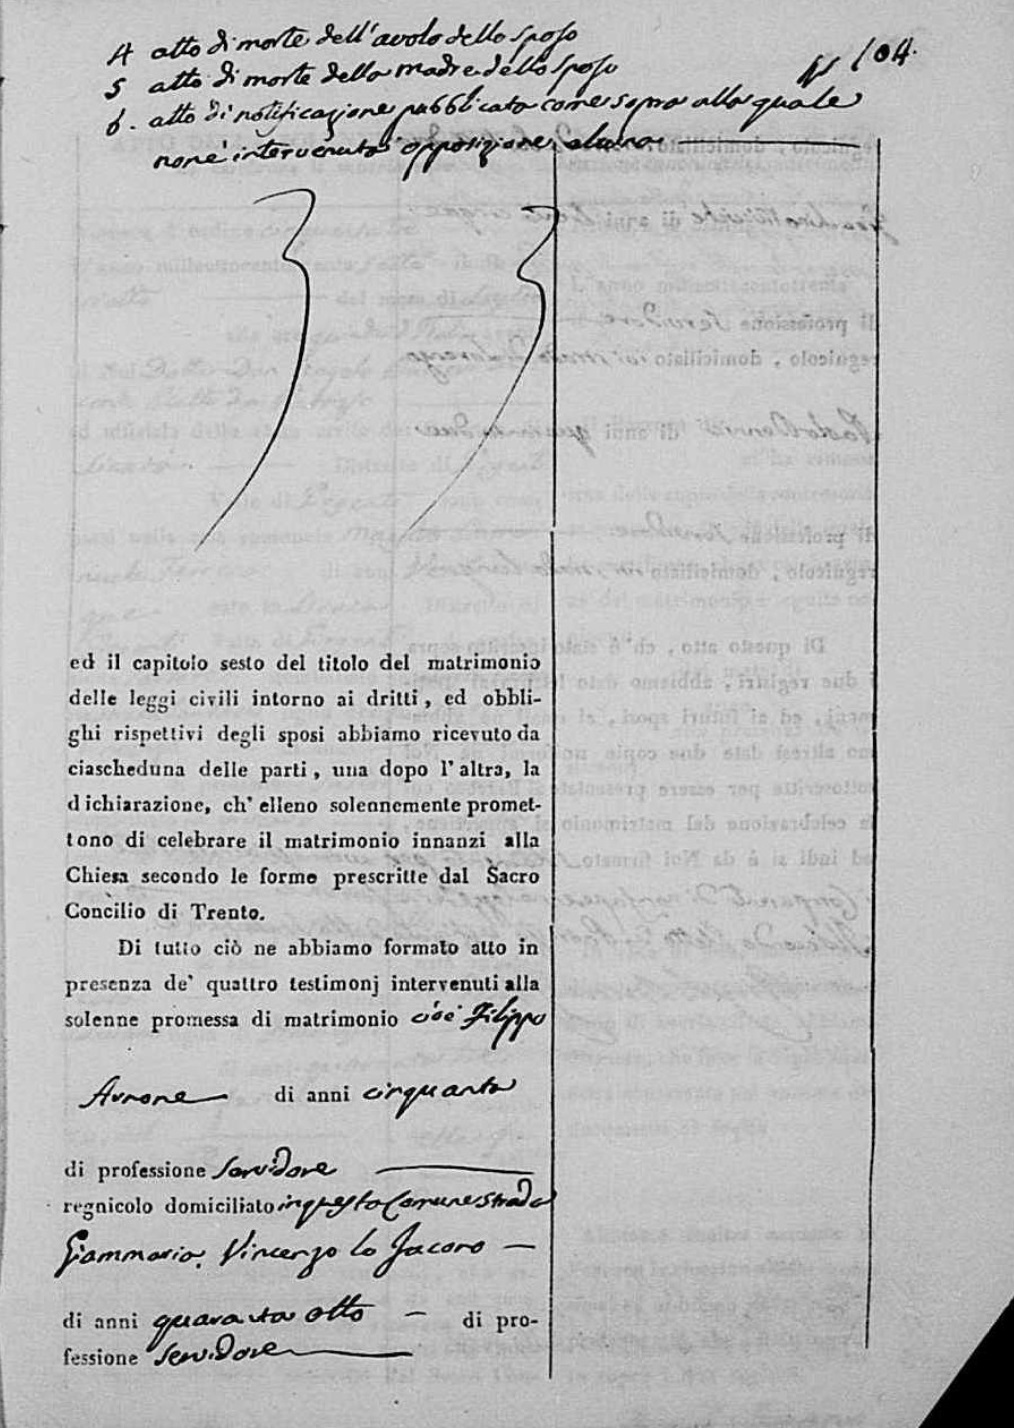 4 atto di morte dell'avolo dello sposo
5 atto di morte della madre dello sposo
104.
6. atto di notificazione pubblicato come sopra alla quale
non è intervenuta opposizione alcuna
ed il capitolo sesto del titolo del matrimonio
delle leggi civili intorno ai dritti, ed obbli-
ghi rispettivi degli sposi abbiamo ricevuto da
ciascheduna delle parti, una dopo l'altra, la
dichiarazione, ch'elleno solennemente promet-
tono di celebrare il matrimonio innanzi alla
Chiesa secondo le forme prescritte dal Sacro
Concilio di Trento.
Di tutto ciò ne abbiamo formato atto in
presenza de' quattro testimonj intervenuti alla
solenne promessa di matrimonio cioè Filippo
Avrone di anni cinquanta
di professione Servidore
regnicolo domiciliato in questo Comune Strada
Giammaria. Vincenzo lo Jacono
di anni quaranta otto di pro-
fessione Servidore